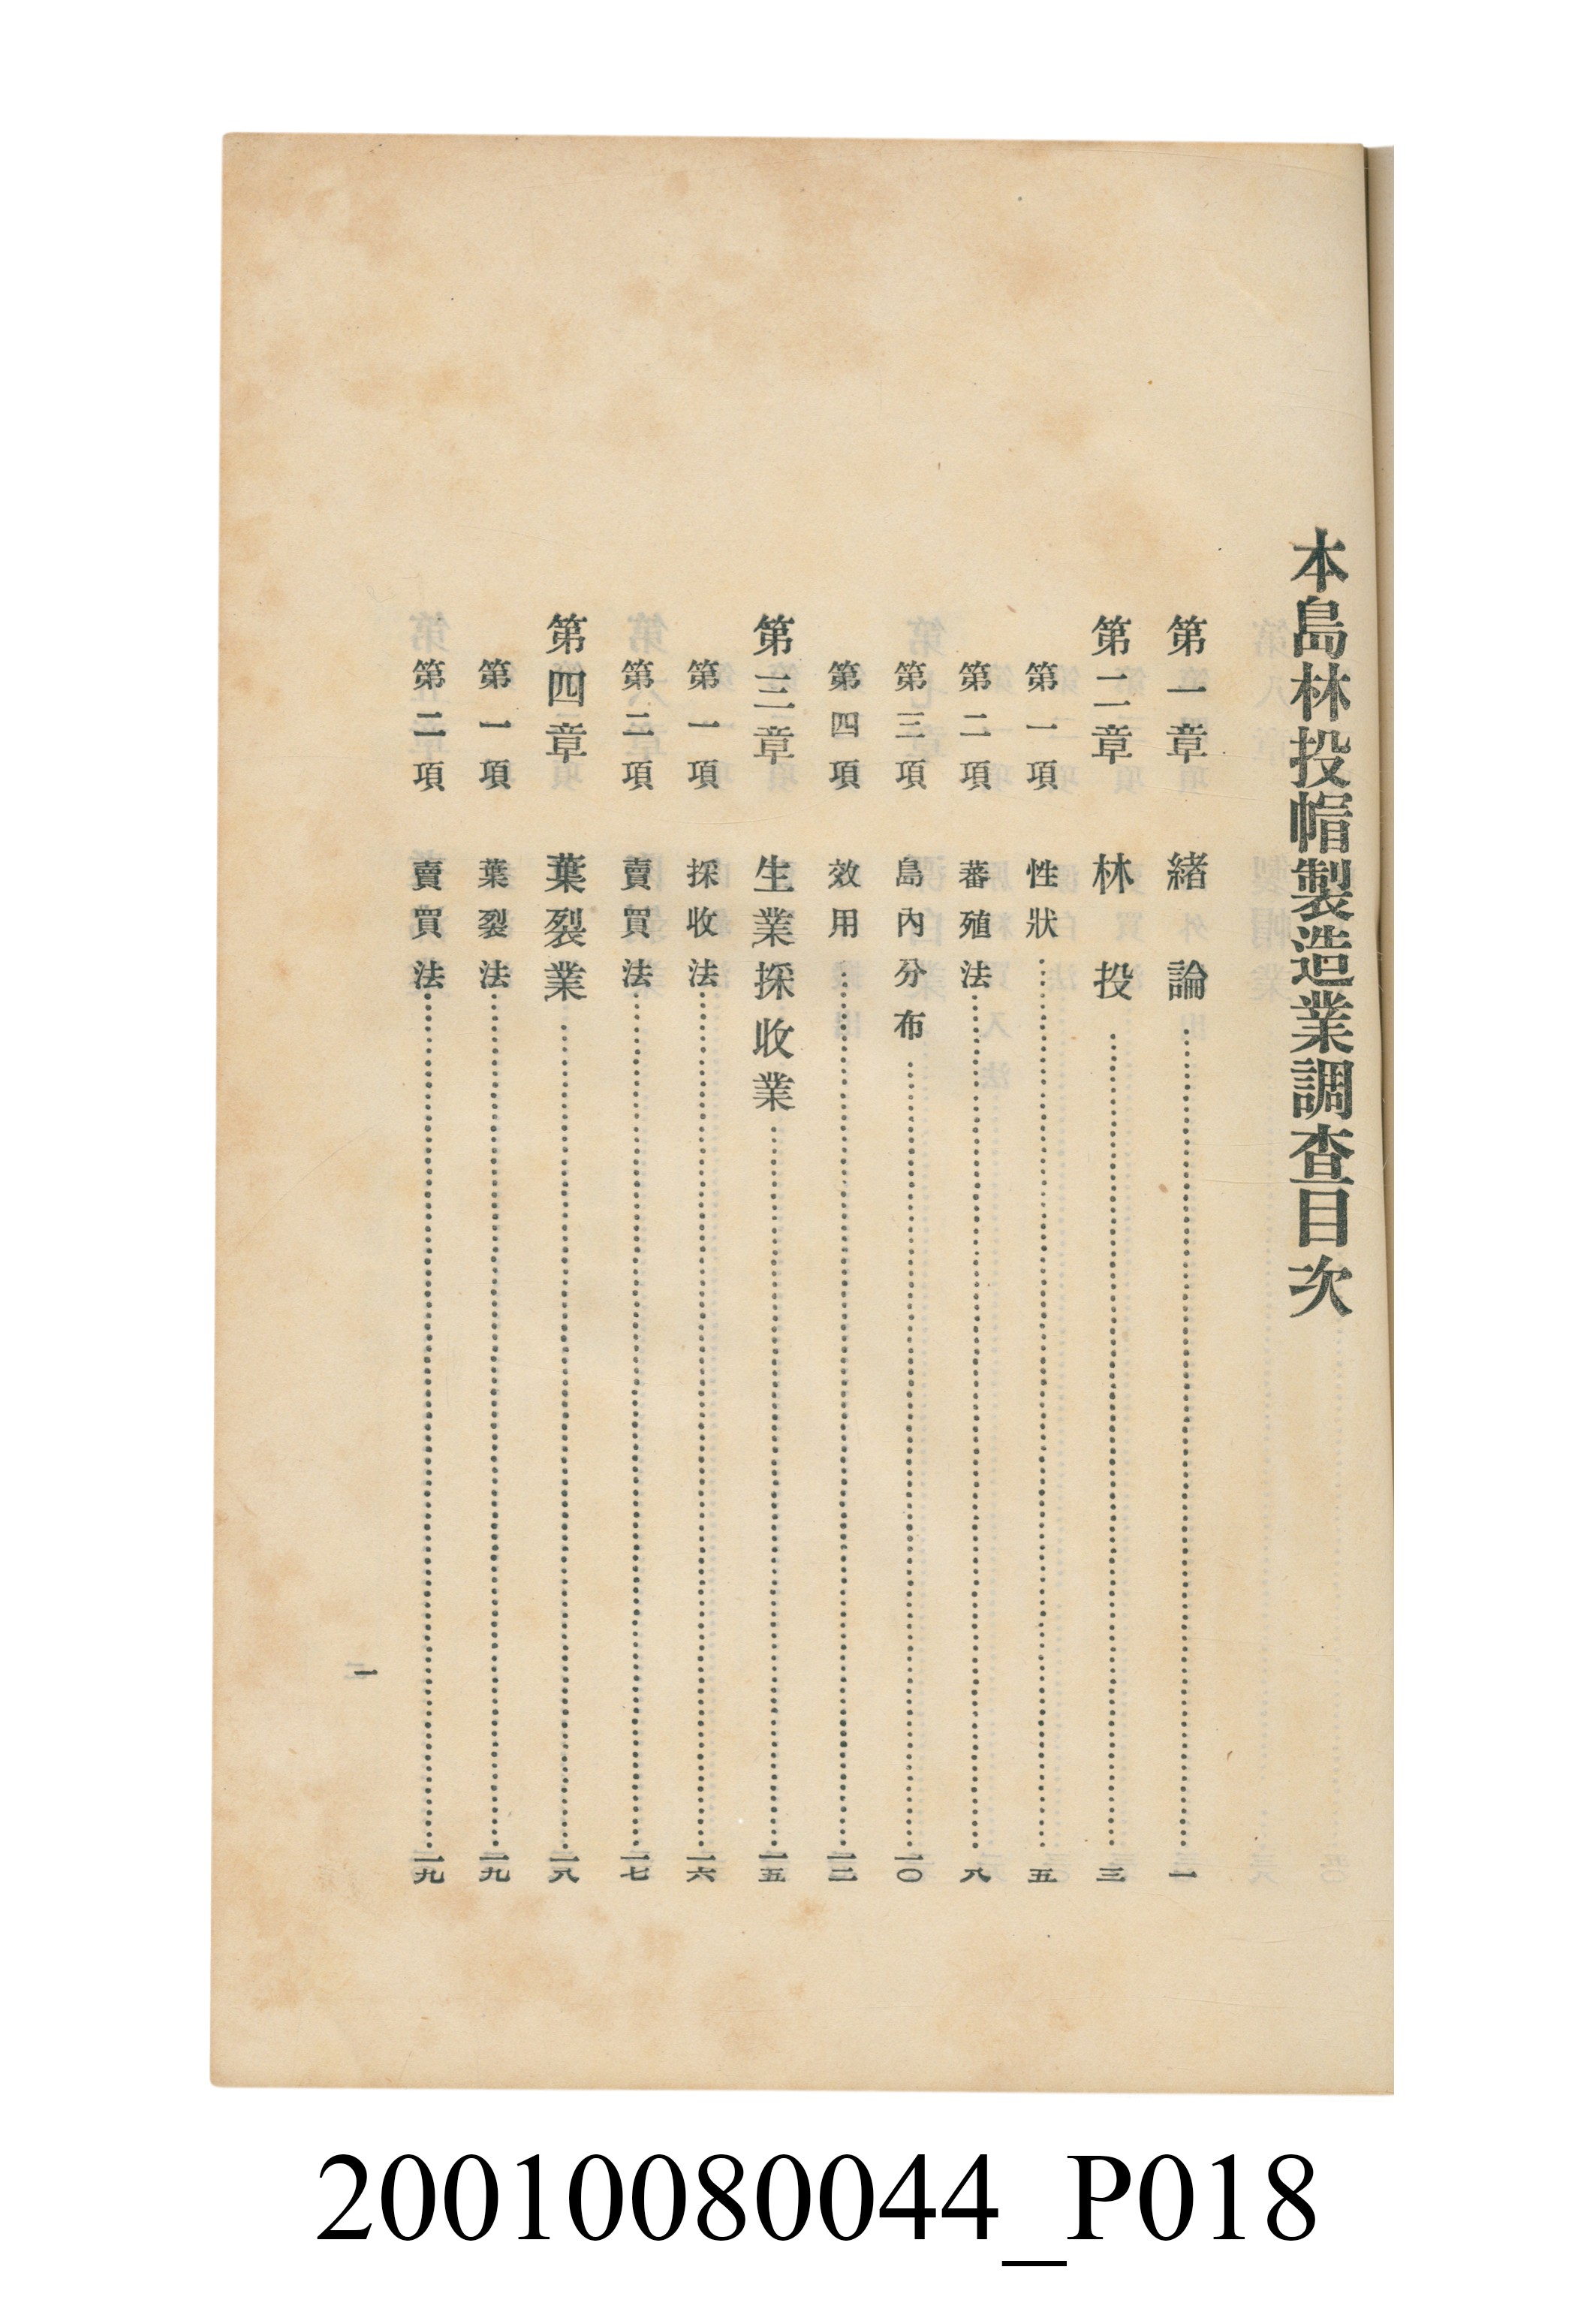 本島林投帽製造業調查目次
第一章 緒論……一
第二章 林投……三
第一項 性狀……五
第二項 蕃殖法……八
第三項 島內分布……一〇
第四項 效用……一二
第三章 生業採收業……一五
第一項 採收法……一六
第二項 賣買法……一七
第四章 葉裂業……一八
第一項 葉裂法……一九
第二項 賣買法……一九
一
20010080044_P018